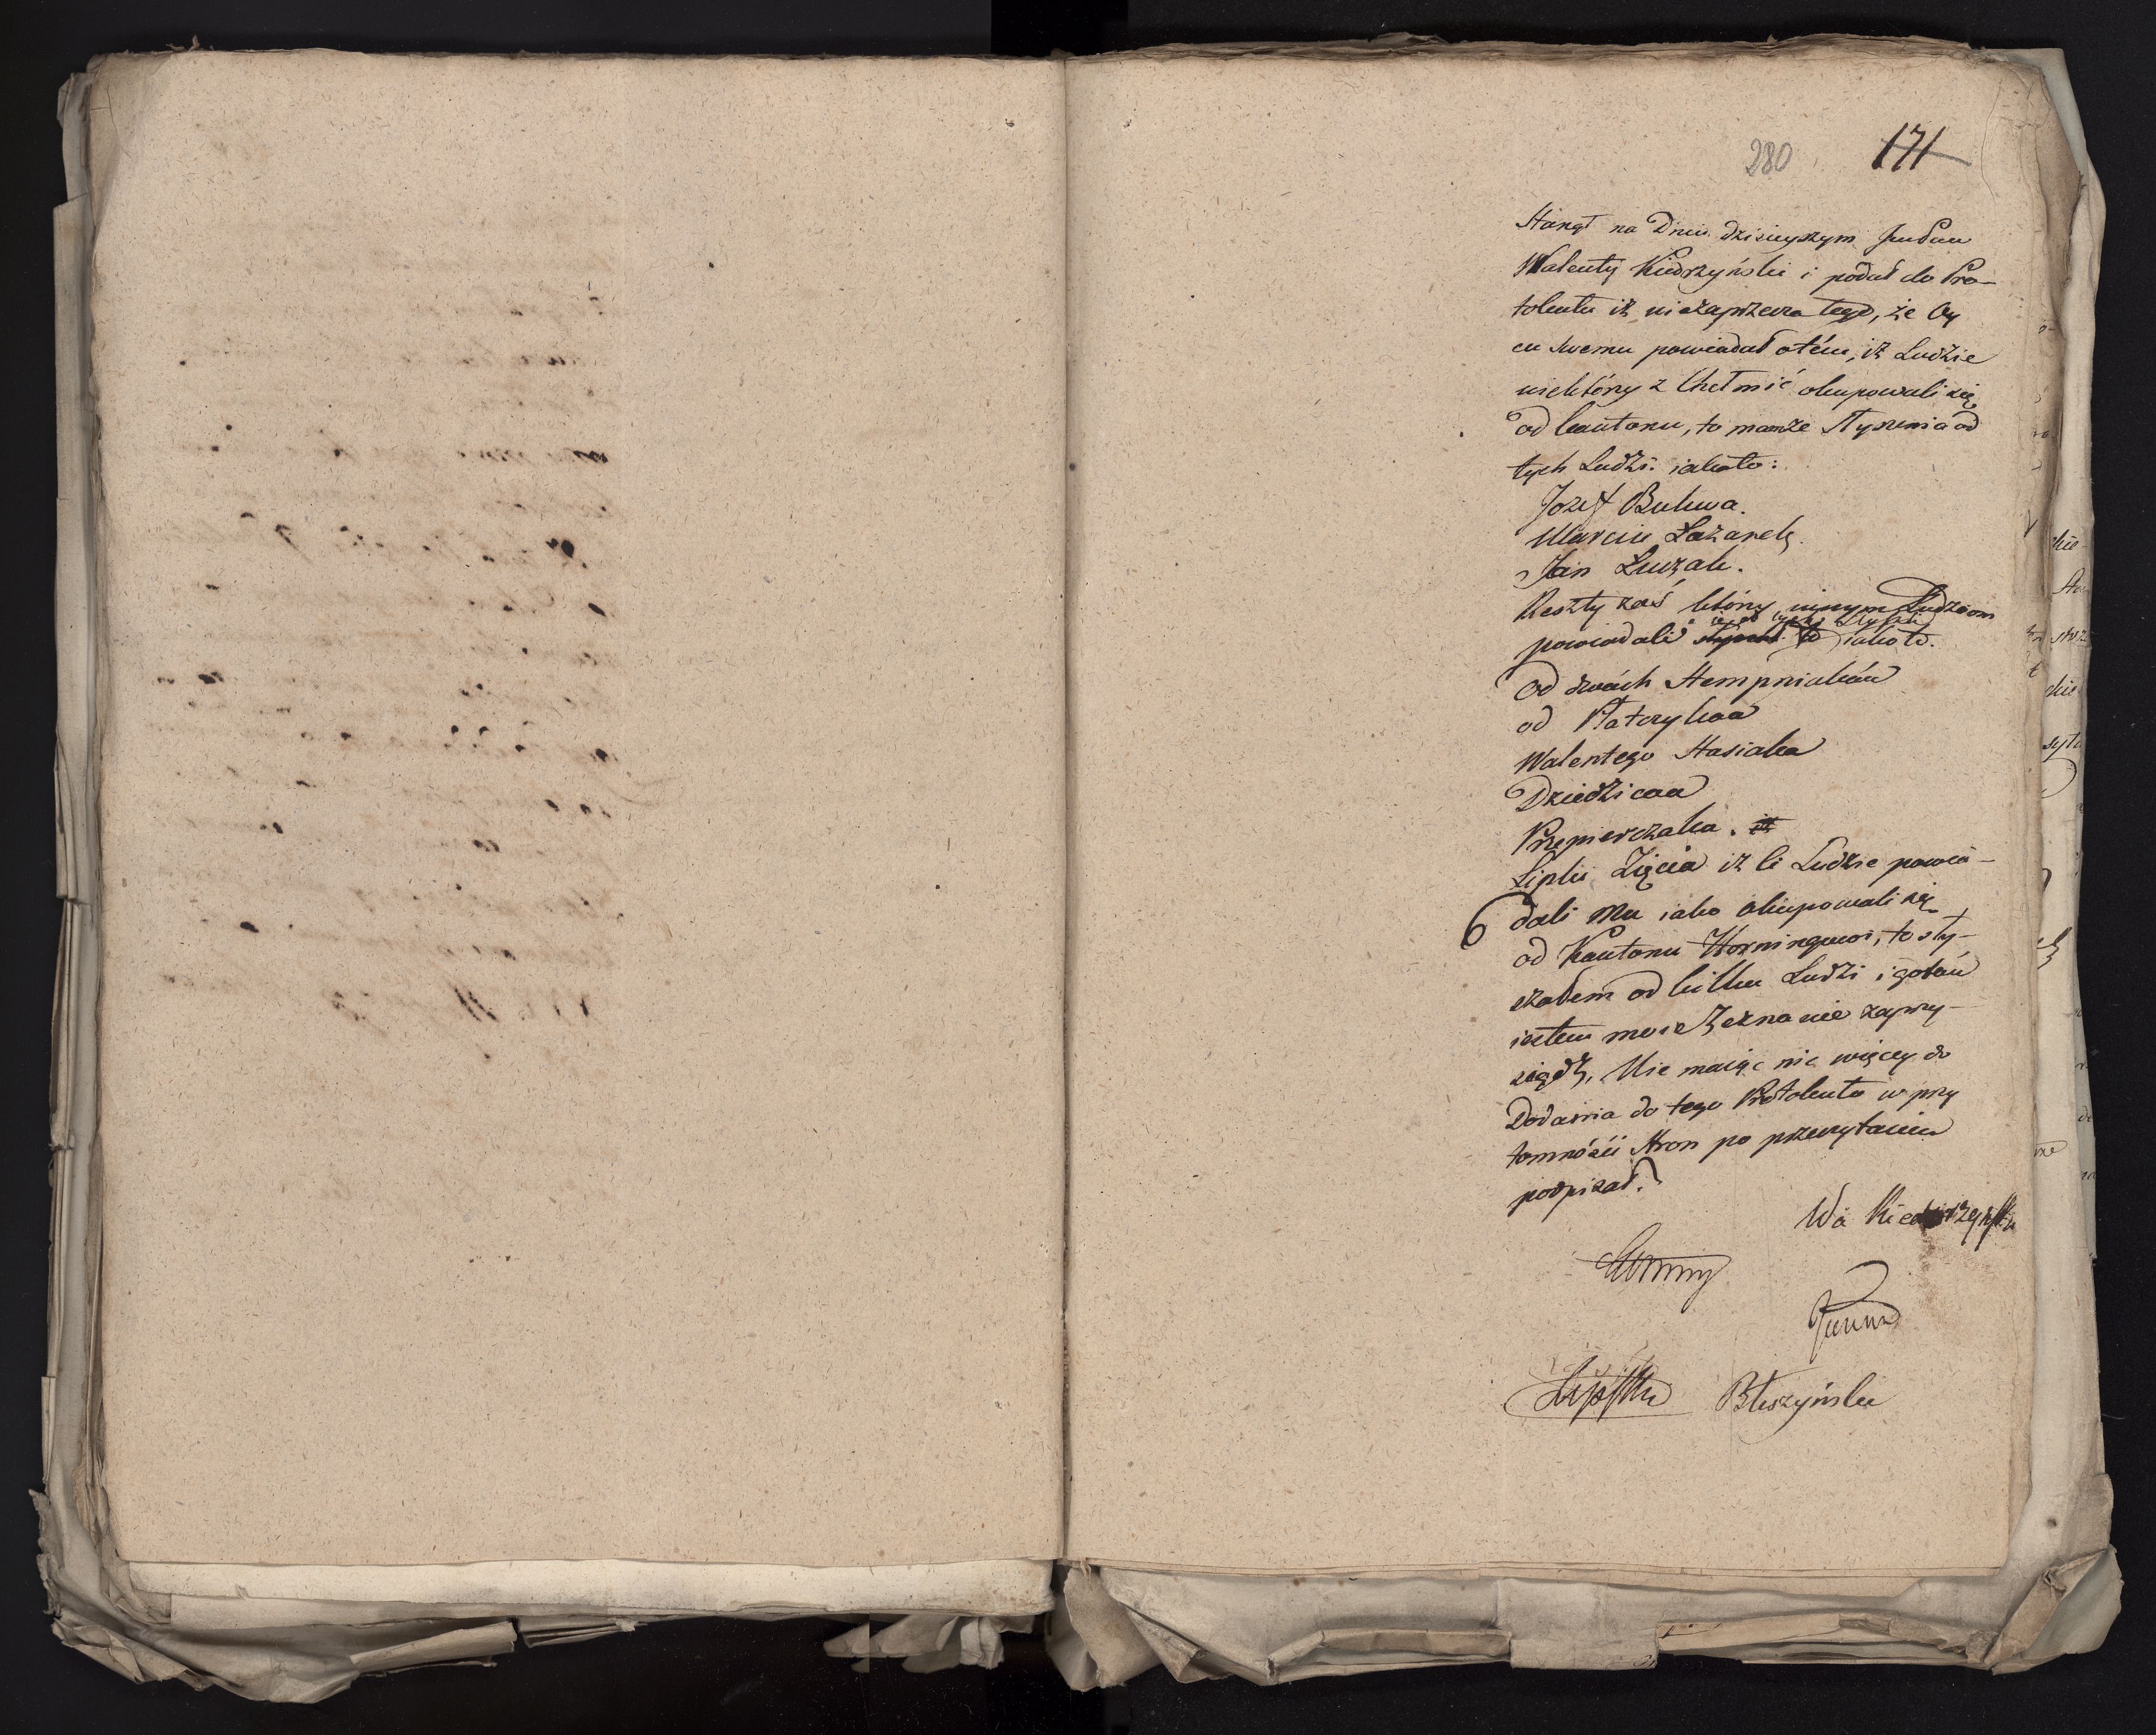 280 171
Stanął na Dniu dzisieyszym
Walenty Kiedrzyński i podał do Pro-
tokułu iż niezaprzecza tego, że Oy
cu swemu powiadał o tém, iż Ludzie
niektórzy z Chełmic okupowali się
od kantonu, to mamże Słyszenia od
tych Ludzi iakoto:
Jozef Bukwa.
Marcin Łażarek.
Jan Łuczak.
Reszty zaś którzy innym Ludziom
iż od tych Słyszał
powiadali iakoto.
Od dwóch Stempniaków
od Matczyka
Walentego Stasiaka
Dziedzica
Przepierczaka. iż
Lipki Zięcia iż ci Ludzie powia-
6 dali Mu iako okupowali się
od Kantonu Horningowi, to sły-
szałem od kilku Ludzi i gotów
iestem moie Zeznanie zaprzy-
siądz, Nie maiąc nic więcey do
Dodania do tego Protokułu w przy
tomności Stron po przeczytaniu
podpisał.
Wa Kiedrzyński
Horning
Lipski Błeszyński